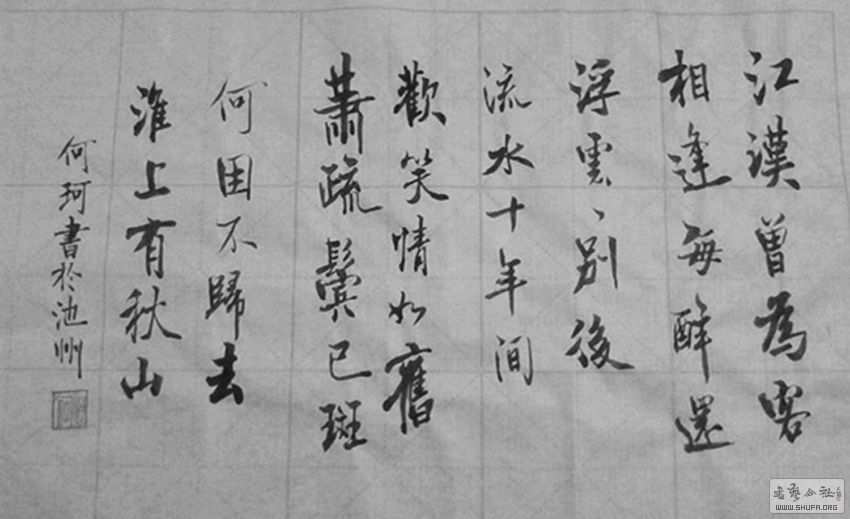 江漢曾為客
相逢每醉還
浮雲一別後
流水十年間
歡笑情如舊
蕭疏鬢已斑
何因不歸去
淮上有秋山
何珂書於池州
書藝公社
WWW.SHUFA.ORG